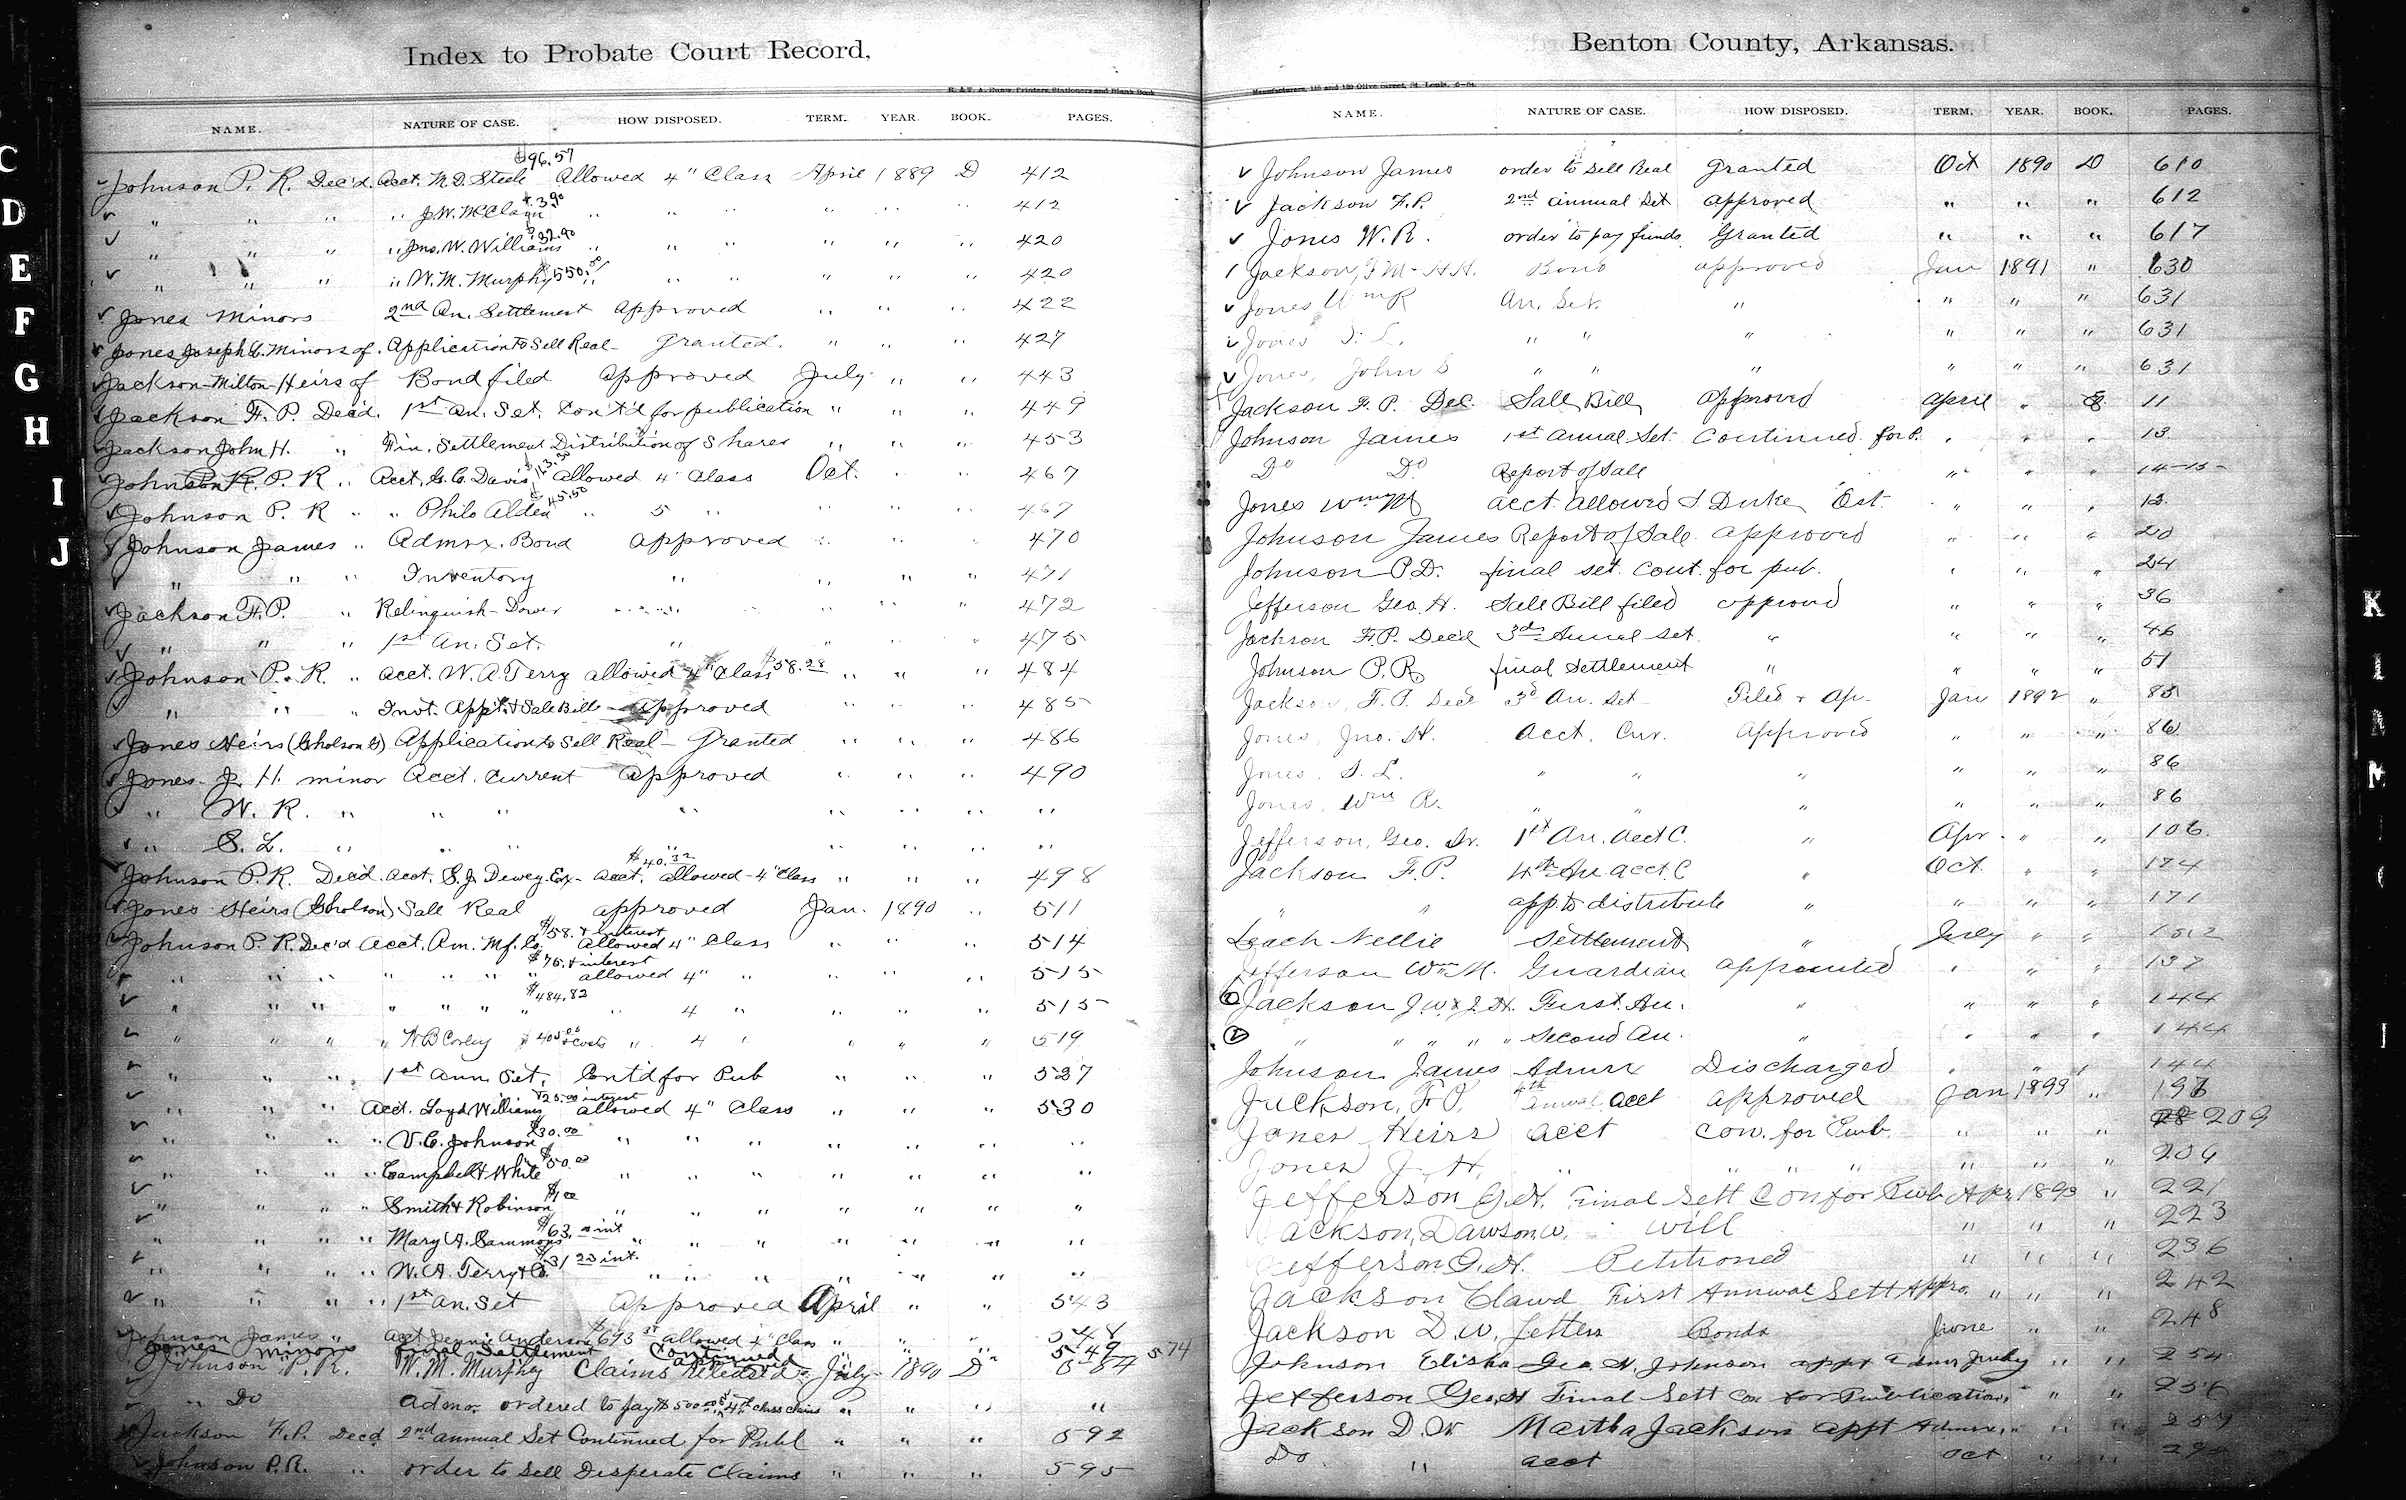 Index to Probate Court Record,
NAME. NATURE OF CASE. HOW DISPOSED. TERM. YEAR. BOOK. PAGES.
$96.57
Johnson P. R. Dec'd. Acct. M.D. Steele Allowed 4" Class April 1889 D 412
" " " " J.W. McClain $3.90 " " " " " " 412
" " " " Jno. W. Williams $32.90 " " " " " " 420
" " " " W.M. Murphy $550. " " " " " " 420
Jones Minors 2nd An. Settlement Approved " " " 422
Jones Joseph G. Minors of. Application to Sell Real- Granted. " " " 427
Jackson Milton Heirs of Bond filed Approved July " " 443
Jackson F. P. Dec'd. 1st An. Set. Cont'd for publication " " " 449
Jackson John H. " Fin. Settlement Distribution of Shares " " " 453
Johnson P. R " Acct. G. C. Davis $123.30 allowed 4" Class Oct. " " 467
Johnson P. R " " Philo Alden $45.50 " 5 " " " " 467
Johnson James " Admrx. Bond approved " " " 470
" " " Inventory " " " " 471
Jackson F.P. " Relinquish-Dower " " " " 472
" " " 1st An. Set. " " " " 475
Johnson P. R. " Acct. W. A. Terry allowed 4" Class $58.28 " " " 484
" " " Invt. Appt. & Sale Bill- Approved " " " 485
Jones Heirs (Gholson G) Application to Sell Real- Granted " " " 486
Jones J. H. minor Acct. Current Approved " " " 490
" W. R. " " " " " " " "
" S. L. " " " " " " " "
Johnson P.R. Dec'd. Acct. S.J. Dewey Ex- Acct. $40.32 allowed-4" Class " " " 498
Jones Heirs (Gholson) Sale Real approved Jan. 1890 " 511
Johnson P. R. Dec'd Acct. Am. Mf. Co $58. & interest Allowed 4" Class " " " 514
" " " " " " " $76. & interest allowed 4" " " " " 515
" " " " " " " $484.82 " 4 " " " " 515
" " " " W B Corley $405.06 & Costs " 4 " " " " 519
" " " 1st Ann. Set. Cont'd for Pub " " " 527
" " " Acct. Loyd Williams $25.00 interest allowed 4" Class " " " 530
" " " " V.C. Johnson $30.00 " " " " " " "
" " " " Campbell & White $50.00 " " " " " " "
" " " " Smith & Robinson " " " " " " "
" " " " Mary A. Sammons $63. int " " " " " " "
" " " " W. A. Terry & Co. $31 23 int. " " " " " " "
" " " " 1st An. Set Approved April " " 543
Johnson James " Acct Jennie Anderson $693 allowed 4" Class " " " 548
Jones minors Final Settlement Continued 549 574
Johnson P. R. W. M. Murphy Claims Released July 1890 D 584
" Do Admr. ordered to pay $500 4th class claims " " " "
Jackson F.P. Decd 2nd annual Set Continued for Publ " " " 592
Johnson P.R. " order to sell Desperate Claims " " " 595
Benton County, Arkansas.
NAME. NATURE OF CASE. HOW DISPOSED. TERM. YEAR. BOOK. PAGES.
Johnson James order to sell Real Granted Oct 1890 D 610
Jackson F.P. 2nd annual Set Approved " " " 612
Jones W. R. order to pay funds Granted " " " 617
Jackson, F M- H.H. Bond approved Jan 1891 " 630
Jones Wm R An. Set. " " " " 631
Jones S. L. " " " " " " 631
Jones, John S " " " " " " 631
Jackson F. P. Dec. Sale Bill Approved April " E 11
Johnson James 1st Annual Set. Continued for P. " " " 13
Do Do Report of Sale " " " 14-15-
Jones Wm M acct allowed Duke Est. " " " 12
Johnson James Report of Sale. approved " " " 20
Johnson P D. final set. Cont. for pub. " " " 24
Jefferson Geo. H. Sale Bill filed approvd " " " 36
Jackson F.P. Dec'd 3d Annual Set. " " " " 46
Johnson P. R. final Settlement " " " " 51
Jackson, F. P. Decd 3d An. Set- Filed & Ap. Jan 1892 " 85
Jones Jno. H. Acct. Cur. Approved " " " 86
Jones. S. L. " " " " " " 86
Jones, Wm R. " " " " " " 86
Jefferson, Geo. Dr. 1st An. Acct C. " Apr. " " 106.
Jackson F.P. 4th An acct. C " Oct. " " 174
" " app. to distribute " " " " 171
Leach Nellie Settlement " July " "
Jefferson Wm M. Guardian appointed " " " 137
Jackson J W & J H. First An. " " " " 144
" " " " " Second An. " " " " 144
Johnson James Admrx Discharged " " " 144
Jackson, F P, 4th annual acct approved Jan 1893 " 193
Jones Heirs acct con. for Pub. " " " 209
Jones J. H. " " " " " " " 209
Jefferson G.H. Final Sett Con for Pub Apr 1893 " 221
Jackson, Dawson W. Will " " " 223
Jefferson G.H. Petitioned " " " 236
Jackson Claud First Annual Sett Appro. " " " 242
Jackson D.W. Letters Bonds June " " 248
Johnson Elisha Geo. N. Johnson appt admr July " " 254
Jefferson Geo. H Final Sett Con for Publication, " " " 256
Jackson D. W. Martha Jackson appt Admrx. " " " 257
Do " acct Oct. " "
C
D
E
F
G
H
I
J
K